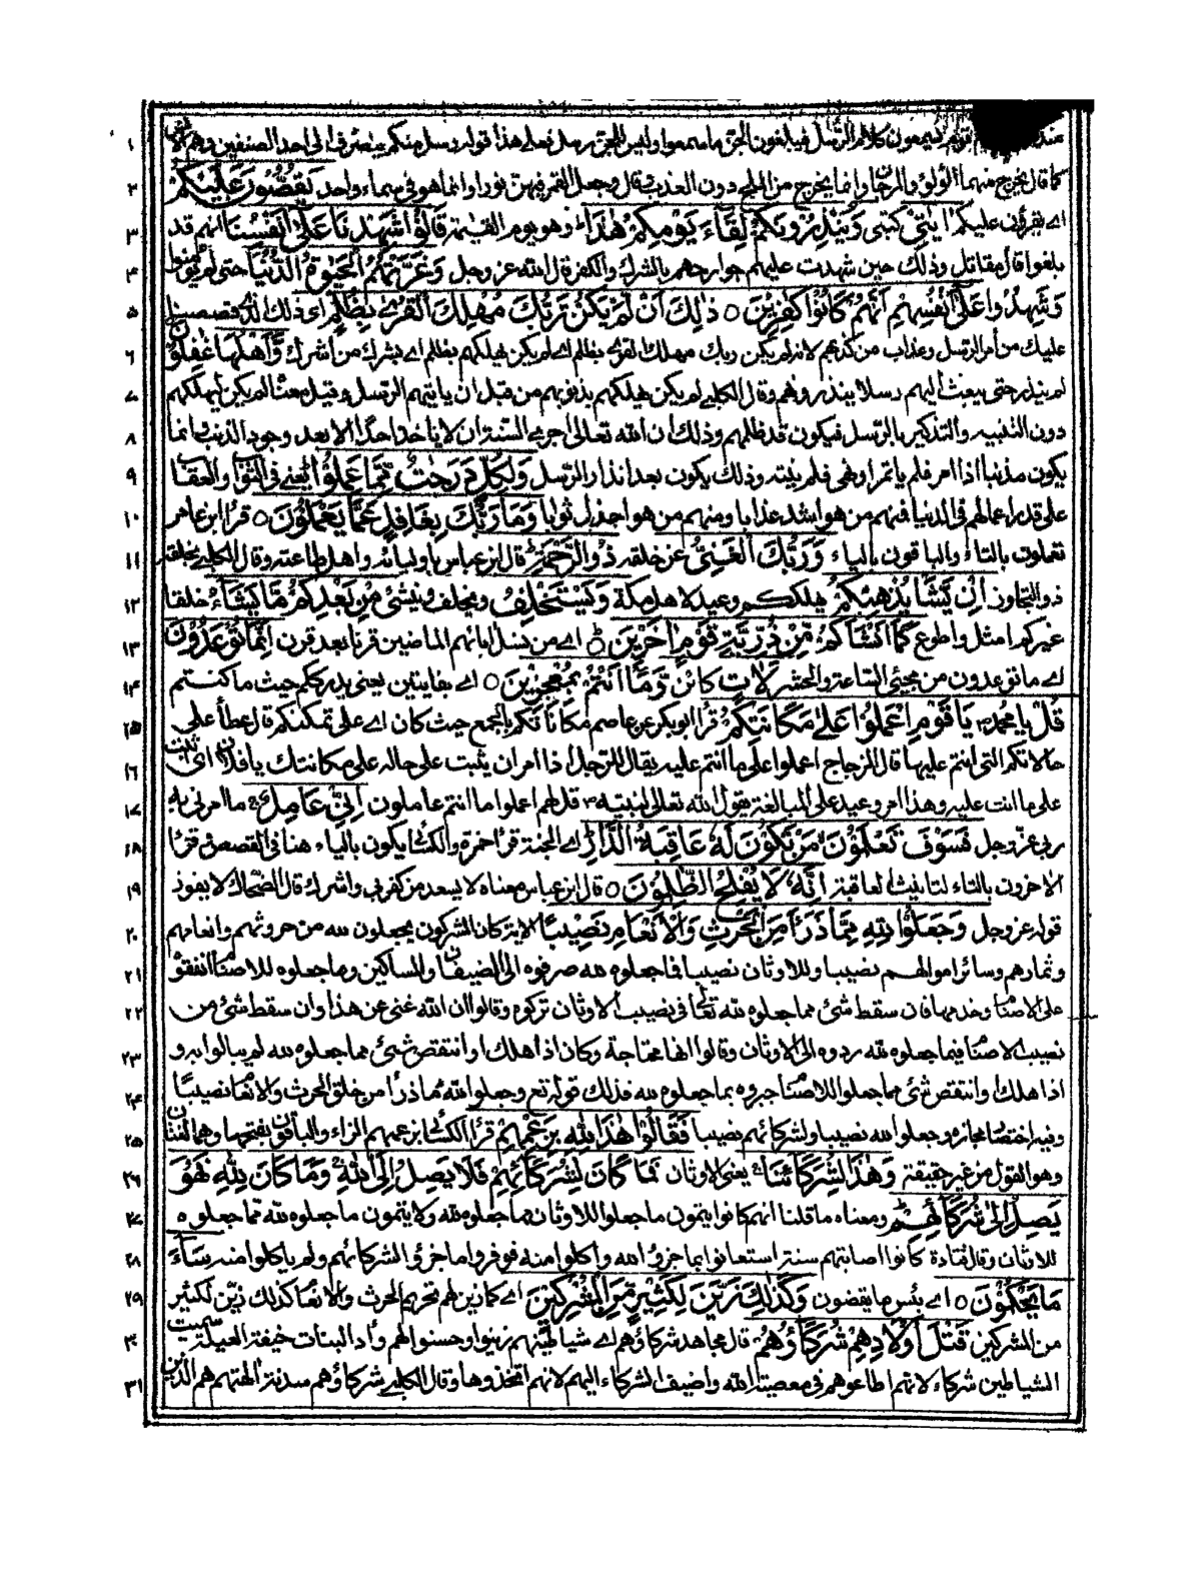 قوم يسمعون كلام الرسل فيبلغون الجن ما سمعوا وليس للجن رسل فعلى هذا قوله رسل منكم ينصرف الى احد الصنفين وهم الانس
كما قال يخرج منهما اللؤلؤ والمرجان وانما يخرج من الملح دون العذب وقال وجعل القمر فيهن نورا وانما هو فى سماء واحد يَقُصُّونَ عَلَيْكُمْ
اے يقرؤن عليكم اٰيٰتِىْ كتبى وَيُنْذِرُوْنَكُمْ لِقَآءَ يَوْمِكُمْ هٰذَا وهو يوم القيٰمة قَالُوْا شَهِدْنَا عَلٰٓى اَنْفُسِنَا انهم قد
بلغوا قال مقاتل وذلك حين شهدت عليهم جوارحهم بالشرك والكفر قال الله عز وجل وَغَرَّتْهُمُ الْحَيٰوةُ الدُّنْيَا حتى لم يؤمنوا
وَشَهِدُوْا عَلٰٓى اَنْفُسِهِمْ اَنَّهُمْ كَانُوْا كٰفِرِيْنَ ○ ذٰلِكَ اَنْ لَّمْ يَكُنْ رَّبُّكَ مُهْلِكَ الْقُرٰى بِظُلْمٍ اے ذلك الذى قصصنا
عليك من أمر الرسل وعذاب من كذبهم لانه لم يكن ربك مهلك القرى بظلم اے لم يكن يهلكهم بظلم اے بشرك من أشرك وَّاَهْلُهَا غٰفِلُوْنَ
لم ينذروا حتى يبعث اليهم رسلا ينذرونهم وقال الكلبے لم يكن يهلكهم بذنوبهم من قبل ان ياتيهم الرسل وقيل معناه لم يكن ليهلكهم
دون التنبيه والتذكير بالرسل فيكون قد ظلمهم وذلك ان الله تعالى اجرى السنة ان لا ياخذ احدًا الا بعد وجود الذنب وانما
يكون مذنبا اذا امر فلم ياتمر او نهى فلم ينته وذلك يكون بعد انذار الرسل وَلِكُلٍّ دَرَجٰتٌ مِّمَّا عَمِلُوْا يعنے فى الثواب والعقاب
على قدر اعمالهم فى الدنيا فمنهم من هو اشد عذابا ومنهم من هو اجزل ثوابا وَمَا رَبُّكَ بِغَافِلٍ عَمَّا يَعْمَلُوْنَ ○ قرأ ابن عامر
تعملون بالتاء والباقون بالياء وَرَبُّكَ الْغَنِىُّ عن خلقه ذُو الرَّحْمَةِ قال ابن عباس باوليائه واهل طاعته وقال الكلبے بخلقه
ذو التجاوز اِنْ يَّشَاْ يُذْهِبْكُمْ يهلككم وعيد لاهل مكة وَيَسْتَخْلِفْ ويخلف وينشئ مِنْ بَعْدِكُمْ مَّا يَشَآءُ خلقا
غيركم امثل واطوع كَمَآ اَنْشَاَكُمْ مِّنْ ذُرِّيَّةِ قَوْمٍ اٰخَرِيْنَ ○ اے من نسل اٰبائهم الماضين قرنا بعد قرن اِنَّمَا تُوْعَدُوْنَ
اے ما توعدون من مجيئ الساعة والحشر لَاٰتٍ كائن وَّمَآ اَنْتُمْ بِمُعْجِزِيْنَ ○ اے بفايتين يعنى يدرككم حيث ما كنتم
قُلْ يا محمد يَا قَوْمِ اعْمَلُوْا عَلٰى مَكَانَتِكُمْ قرأ ابوبكر عن عاصم مكاناتكم بالجمع حيث كان اے على تمكنكم قال عطأ على
حالاتكم التى انتم عليها قال الزجاج اعملوا على ما انتم عليه يقال للرجل اذا امر ان يثبت على حاله على مكانتك يا فلان اى اثبت
على ما انت عليه وهذا امر وعيد على المبالغة يقول الله تعالى لنبيه قل لهم اعملوا ما انتم عاملون اِنِّىْ عَامِلٌ ما امرنى به
ربى عز وجل فَسَوْفَ تَعْلَمُوْنَ مَنْ تَكُوْنُ لَهٗ عَاقِبَةُ الدَّارِ اے الجنة قرأ حمزة والكسائى يكون بالياء هنا فى القصص وقرأ
الاخرون بالتاء لتانيث العاقبة اِنَّهٗ لَا يُفْلِحُ الظّٰلِمُوْنَ ○ قال ابن عباس معناه لا يسعد من كفر بى واشرك قال الضحاك لا يفوز
قوله عز وجل وَجَعَلُوْا لِلّٰهِ مِمَّا ذَرَاَ مِنَ الْحَرْثِ وَالْاَنْعَامِ نَصِيْبًا الاية كان المشركون يجعلون لله من حروثهم وانعامهم
وثمارهم وسائر اموالهم نصيبا وللاوثان نصيبا فما جعلوه لله صرفوه الى الضيفان والمساكين وما جعلوه للاصنام انفقوا
على الاصنام وخدمها فان سقط شئى مما جعلوه لله تعالى فى نصيب الاوثان تركوه وقالوا ان الله غنى عن هذا وان سقط شئ من
نصيب الاصنام فيما جعلوه لله ردوه الى الاوثان وقالوا انها محتاجة وكان اذا هلك او انتقص شئ مما جعلوه لله لم يبالوا به و
اذا هلك او انتقص شئى مما جعلوا للاصنام جبروه بما جعلوه لله فذلك قوله تع وجعلوا لله مما ذرأ من خلق الحرث والانعام نصيبًا
وفيه اختصار مجازه وجعلوا لله نصيبا ولشركائهم نصيبا فَقَالُوْا هٰذَا لِلّٰهِ بِزَعْمِهِمْ قرأ الكسائى بزعمهم الزاء والباقون بفتحها وهما لغتان
وهو القول من غير حقيقة وَهٰذَا لِشُرَكَآئِنَا يعنى الاوثان فَمَا كَانَ لِشُرَكَآئِهِمْ فَلَا يَصِلُ اِلَى اللّٰهِ وَمَا كَانَ لِلّٰهِ فَهُوَ
يَصِلُ اِلٰى شُرَكَآئِهِمْ ومعناه ما قلنا انهم كانوا يتمون ما جعلوا للاوثان مما جعلوه لله ولا يتمون ما جعلوه لله مما جعلوه
للاوثان وقال قتادة كانوا اصابتهم سنة استعانوا بما جزؤا لله واكلوا منه فوفروا ما جزؤا لشركائهم ولم ياكلوا منه سَآءَ
مَا يَحْكُمُوْنَ ○ اے بئس ما يقضون وَكَذٰلِكَ زَيَّنَ لِكَثِيْرٍ مِّنَ الْمُشْرِكِيْنَ اے كما زين لهم تحريم الحرث والانعام كذلك زين لكثير
من المشركين قَتْلَ اَوْلَادِهِمْ شُرَكَآؤُهُمْ قال مجاهد شركاؤهم اے شياطينهم زينوا وحسنوا لهم وأد البنات خيفة العيلة سميت
الشياطين شركاء لانهم اطاعوهم فى معصية الله واضيف الشركاء اليهم لانهم اتخذوها وقال الكلبے شركاؤهم سدنة اٰلهتهم هم الذين